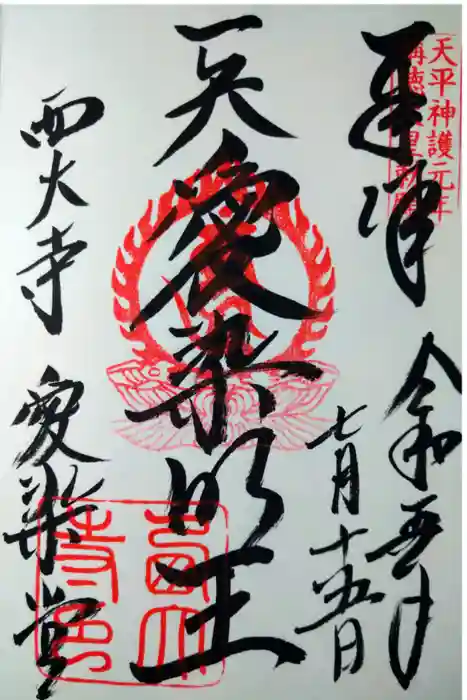 天平神護元年
稱徳天皇勅願
奉拝
令和五年
七月十五日
愛染明王
西大寺 愛染堂
西大寺印